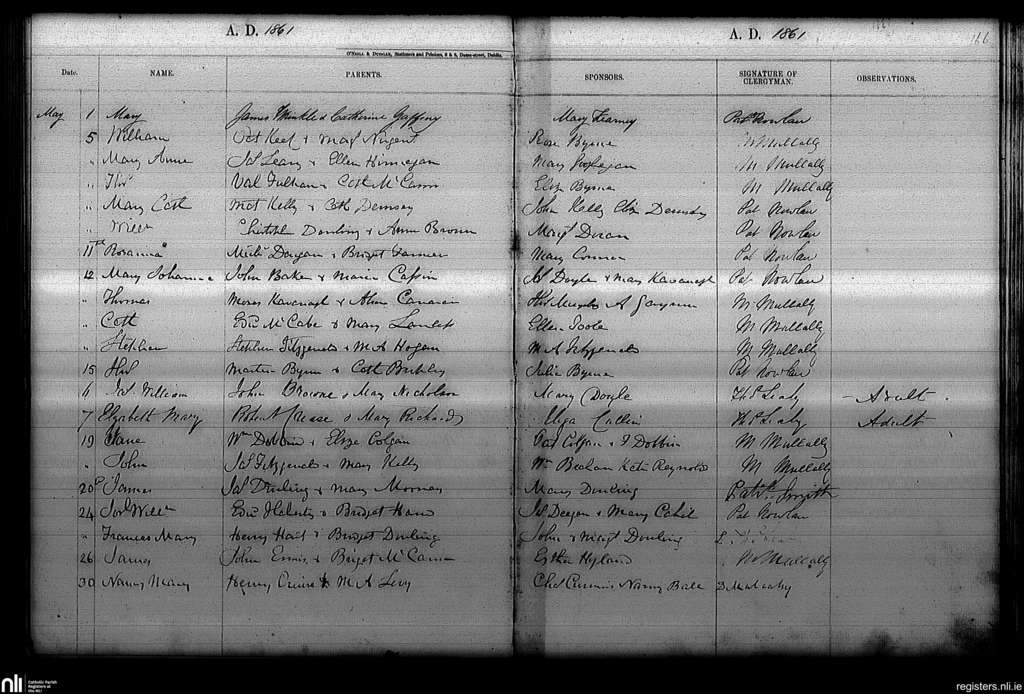 A. D. 1861
A. D. 1861
166
O'Neill & Duggan, Stationers and Printers, Dame-street, Dublin.
Date. NAME. PARENTS. SPONSORS. SIGNATURE OF CLERGYMAN. OBSERVATIONS.
May 1 Mary James & Catherine Mary Kearney Pat Nowlan
5 William Pat Keef & Margt Nugent Rose Byrne M Mullally
" Mary Anne Jas Leary & Ellen Finnegan Mary M Mullally
" Thos Val Fulham & Cath McCann Eliz Byrne M Mullally
" Mary Cath Mat Kelly & Cath Dempsey John Kelly Eliz Dempsey Pat Nowlan
" Willm Dowling & Anne Brown Margt Doran Pat Nowlan
11th Rosanna Michl Dargan & Bridget Farmer Mary Connor Pat Nowlan
12 Mary Johanna John Baker & Maria Jas Doyle & Mary Kavanagh Pat Nowlan
" Thomas Moses Kavanagh & Cameron Thos Murphy A M Mullally
" Cath Edwd McCabe & Mary Ellen Toole M Mullally
" Stephen Stephen Fitzgerald & M A Hogan M A Fitzgerald M Mullally
15 Thos Martin Byrne & Cath Julia Byrne Pat Nowlan
6 Jas William John Browne & Mary Nicholson Mary Doyle Thos Leahy - Adult .
7 Elizabeth Mary Robert & Mary Richards Eliza Cullin Thos Leahy Adult
19 Jane Wm Dobbin & Eliza Colgan Pat Colgan & J Dobbin M Mullally
" John Jas Fitzgerald & Mary Kelly Wm Kate Reynolds M Mullally
20 James Jas Dowling & Mary Mary Dowling Patk Smyth
24 Willm Edwd & Bridget Jas Deegan & Mary Cahil Pat Nowlan
" Frances Mary Henry & Bridget Dowling John & Margt Dowling
26 James John Ennis & Bridget McCann Esther Hyland M Mullally
30 Nanny Mary Henry & M A Levy Chas Nanny Ball D Mulcahy
nli
Catholic Parish
Registers at
the NLI
registers.nli.ie